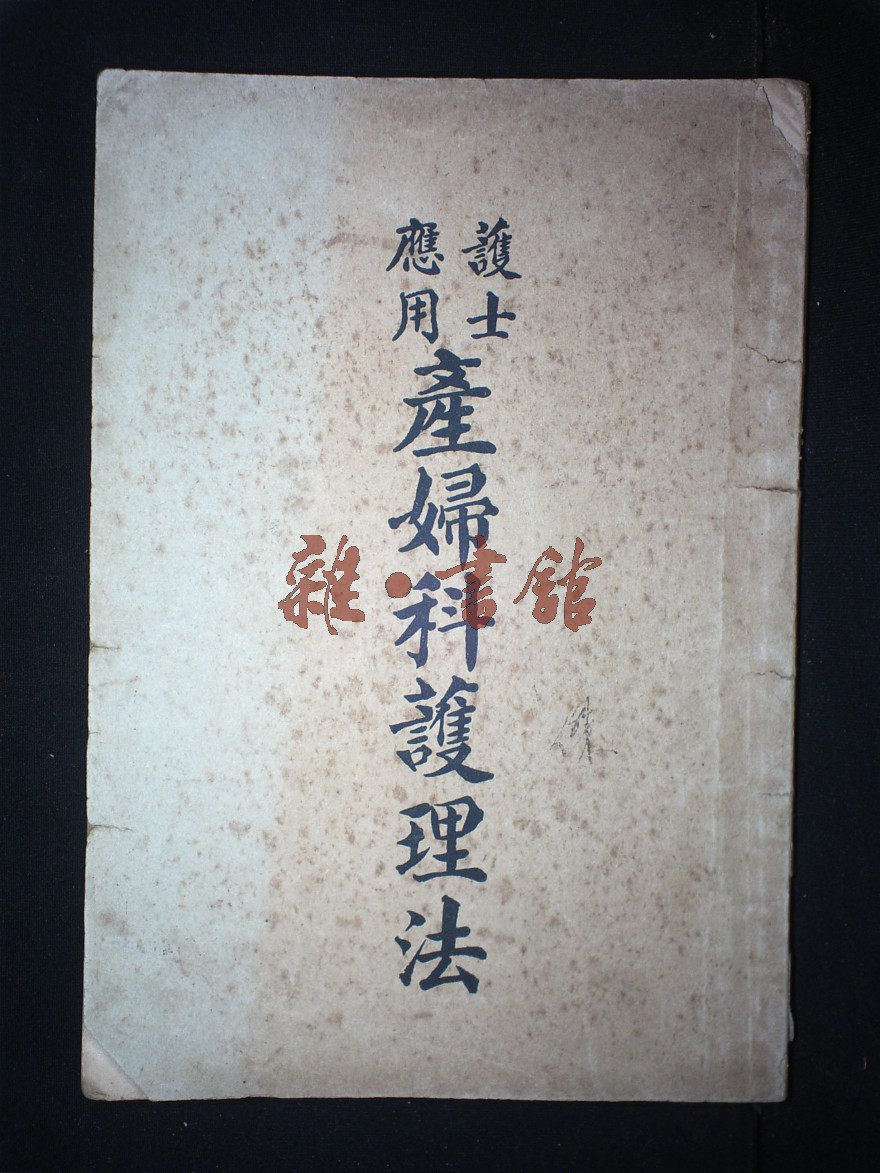 護士
應用
產婦科護理法
雜·書館